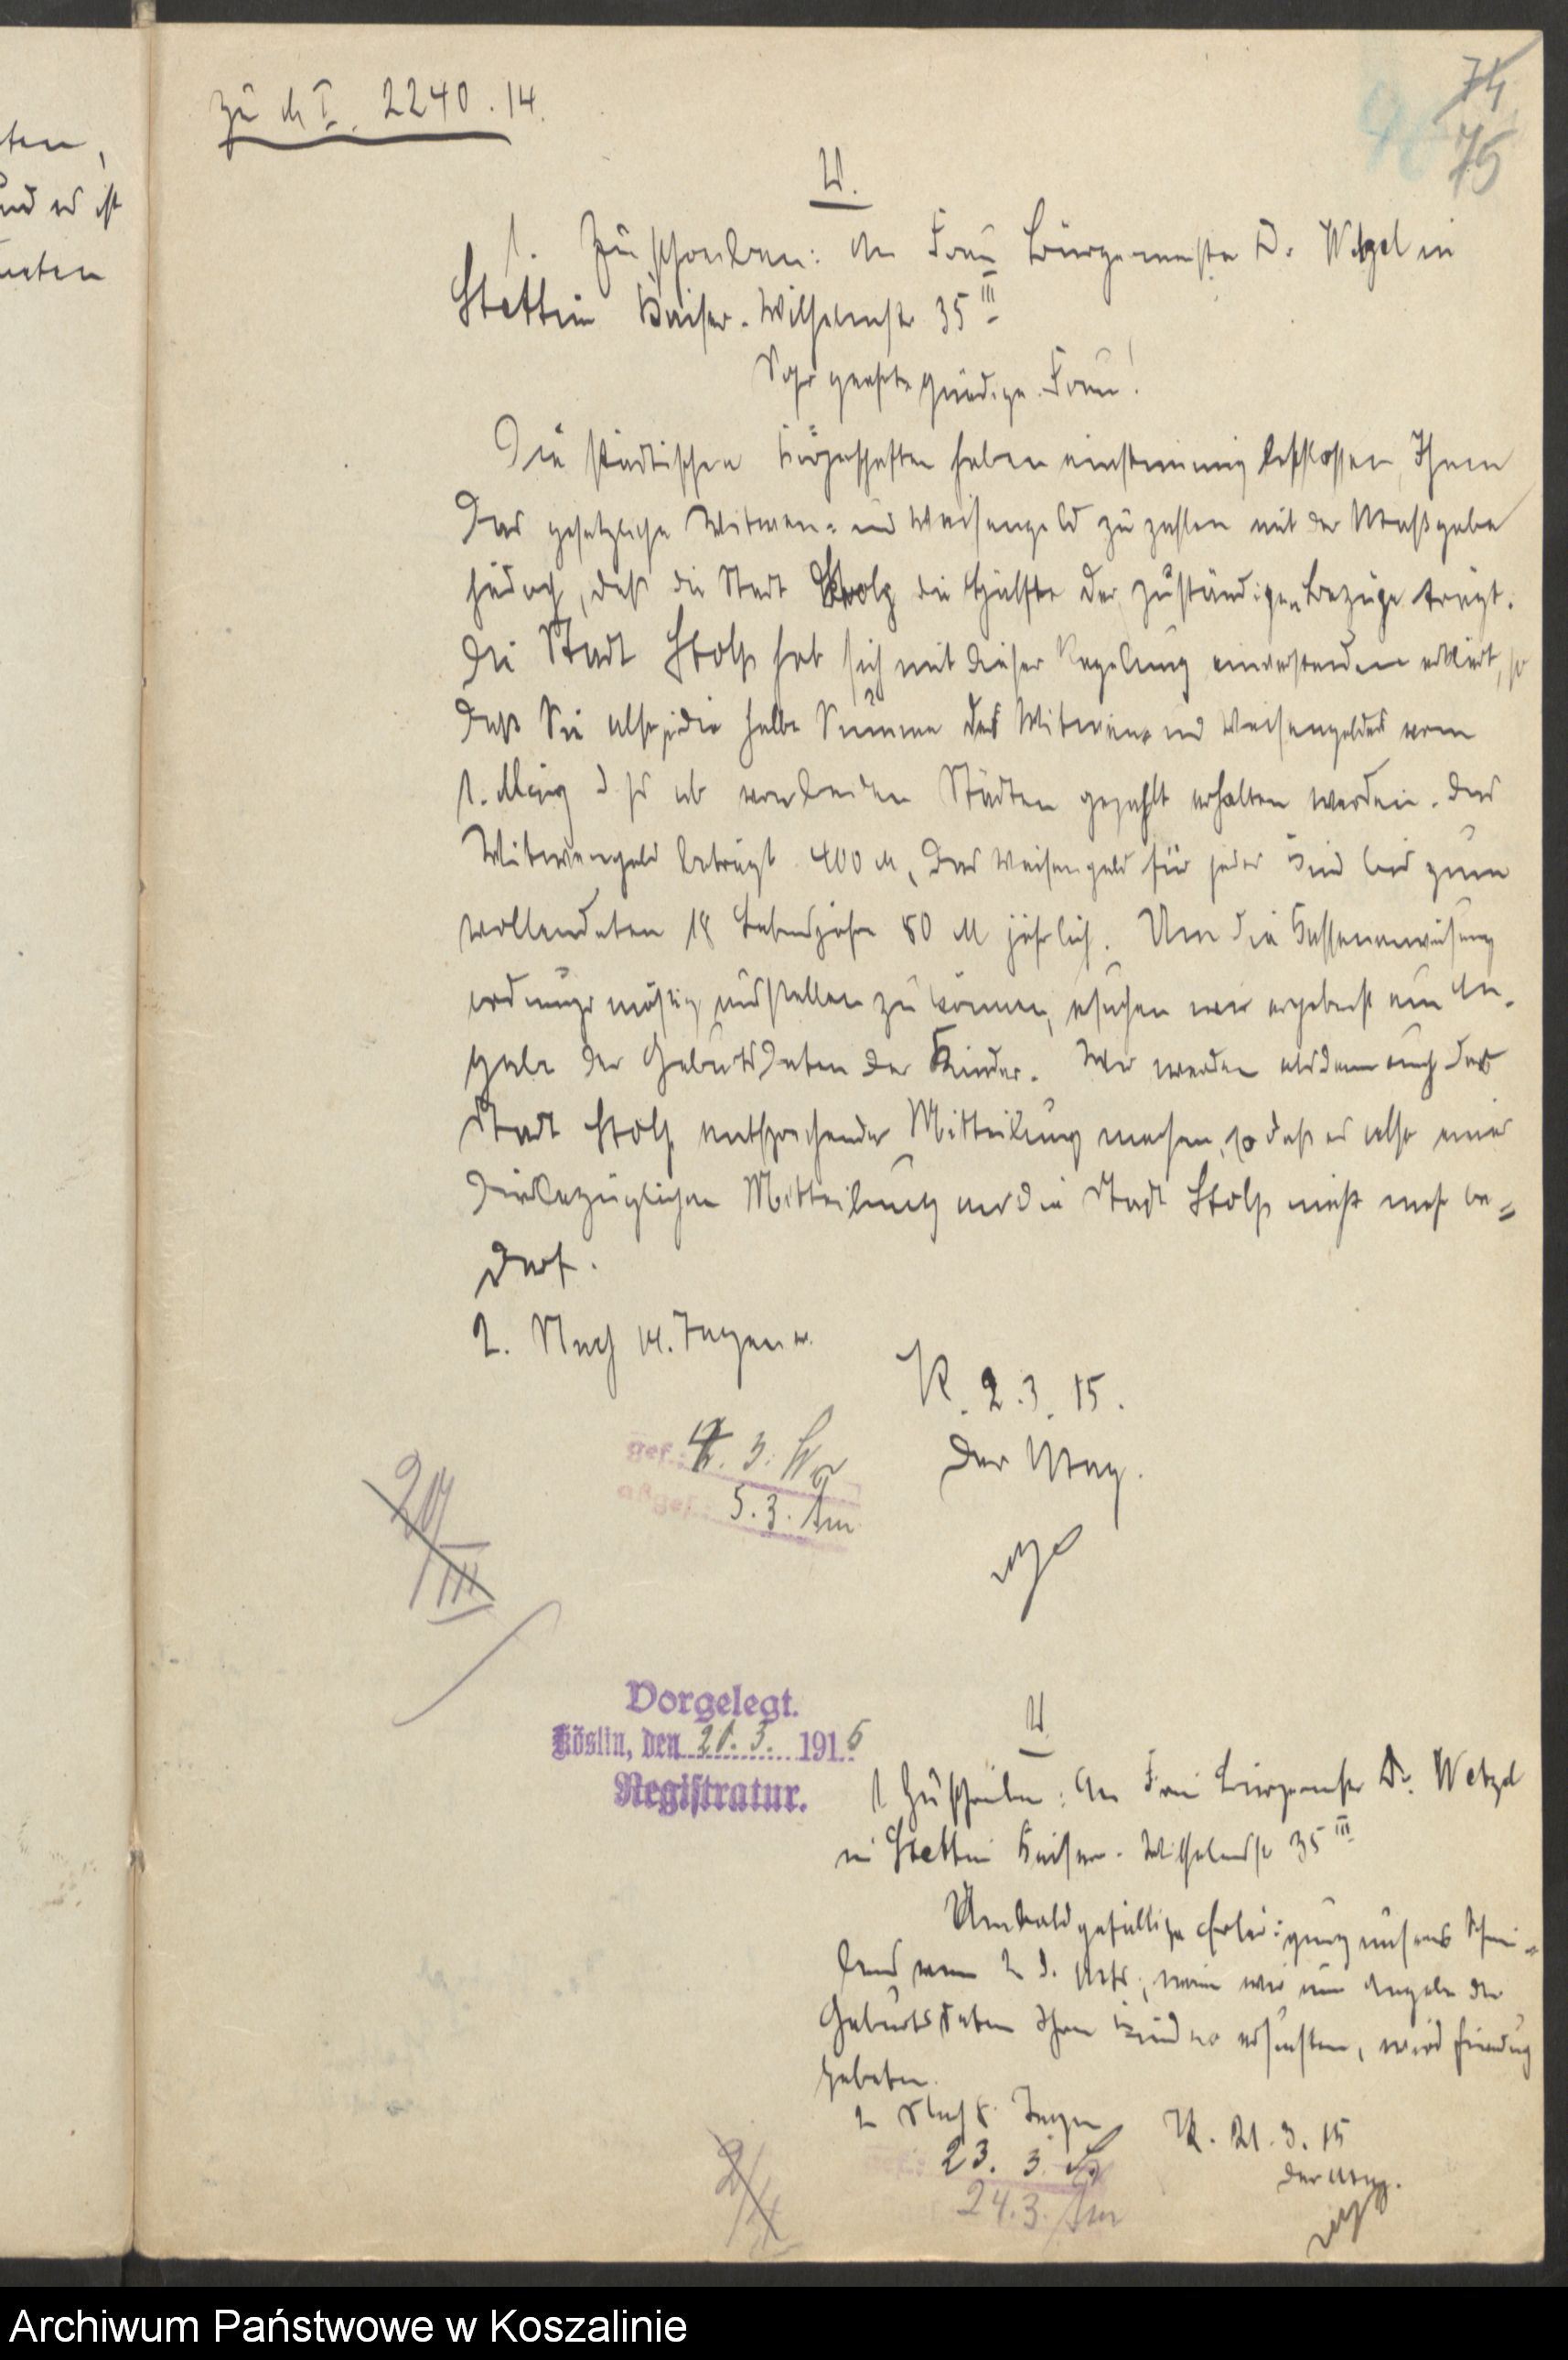 ten,
und es ist
neten
zu M I. 2240.14.
74
75
U.
1. Zu schreiben: An Frau Bürgermeister Dr. Wetzel in
Stettin Kaiser-Wilhelmstr 35 III
Sehr geehrte gnädige Frau!
Die städtischen Körperschaften haben einstimmig beschlossen, Ihnen
das gesetzliche Witwen- und Waisengeld zu zahlen mit der Maßgabe
jedoch, daß die Stadt Stolp die Hälfte der zuständigen Bezüge trägt.
Die Stadt Stolp hat sich mit dieser Regelung einverstanden erklärt, so
daß Sie also je die halbe Summe des Witwen- und Waisengeldes vom
1. März d. Js ab von beiden Städten gezahlt erhalten werden. Das
Witwengeld beträgt 400 M, das Waisengeld für jedes Kind bis zum
vollendeten 18 Lebensjahre 80 M jährlich. Um die Kassenanweisung
ordnungsmäßig ausstellen zu können, ersuchen wir ergebenst um An-
gabe der Geburtsdaten der Kinder. Wir werden alsdann auch der
Stadt Stolp entsprechende Mitteilung machen, so daß es also einer
diesbezüglichen Mitteilung an die Stadt Stolp nicht mehr be-
darf.
2. Nach 14. Tagen w.
K. 2.3.15.
Der Mag.
gef.: 4. 3.
abgef.: 5.3.
20/III
Vorgelegt.
Köslin, den 21. 3. 1915
Registratur.
U
1 Zu schreiben: An Frau Bürgermstr Dr. Wetzel
in Stettin Kaiser-Wilhelmstr 35 III
Um bald gefällige Erledigung unseres Schrei-
bens vom 2 d. Mts, worin wir um Angabe der
Geburtsdaten Ihrer Kinder ersuchten, wird
gebeten.
2 Nach 8 Tagen
K. 21.3.15
Der Mag.
23. 3.
24.3.
Archiwum Państwowe w Koszalinie